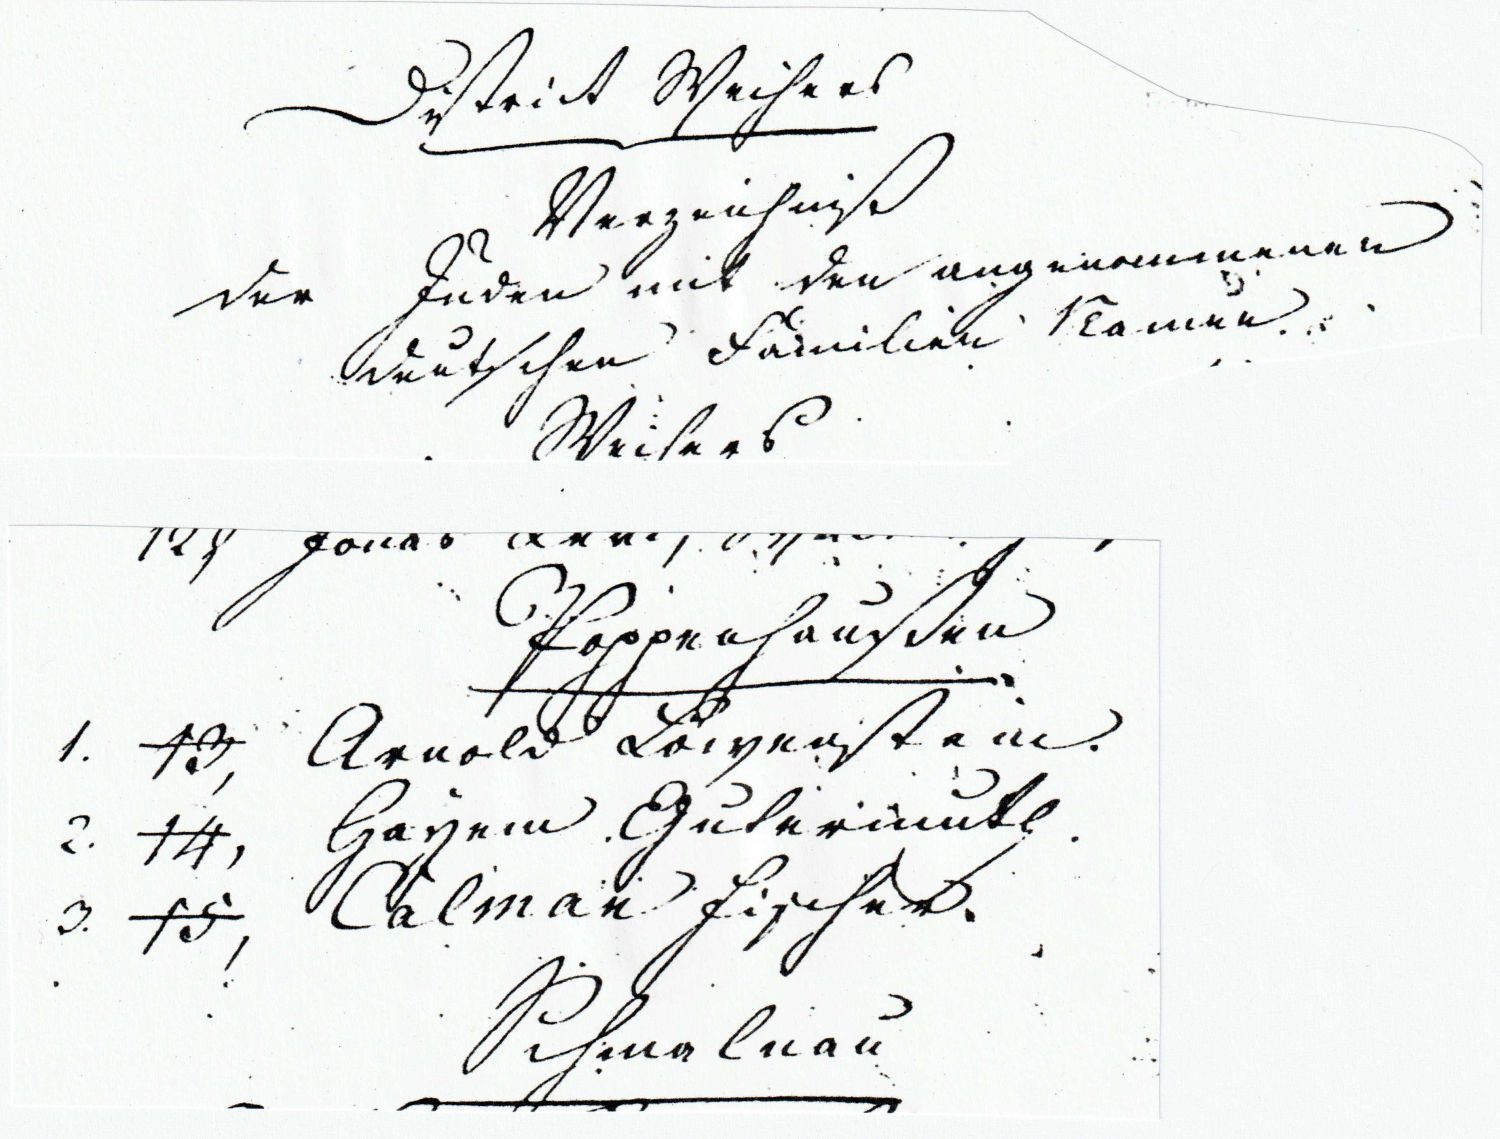 District Weihers
Verzeichniß
der Juden mit den angenommenen
deutschen Familien Namen.
Weihers
12, Jonas
Poppenhaußen
1. 13, Arnold Löwenstein.
2. 14, Hayem Gutermuth.
3. 15, Calman Fischer.
Schmalnau